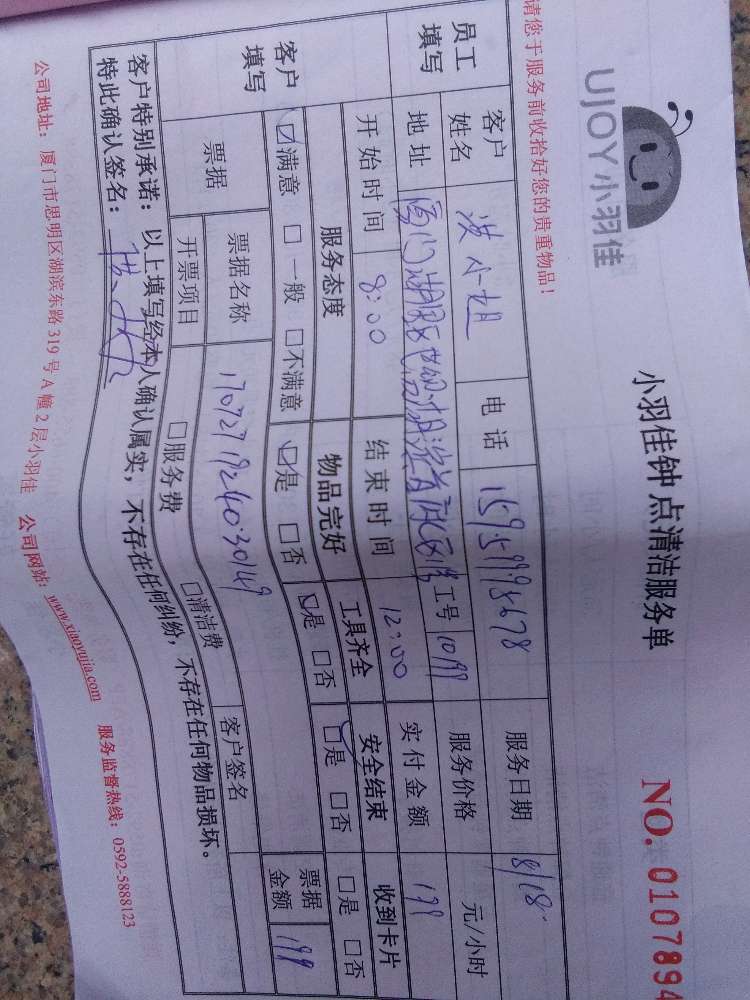 UJOY小羽佳
小羽佳钟点清洁服务单
NO. 0107894
请您于服务前收拾好您的贵重物品!
员工填写 客户姓名 洪小姐 电话 15959998678 服务日期 8/18
地址 工号 1099 服务价格 元/小时
开始时间 8:00 结束时间 12:00 实付金额 199
客户填写 服务态度 物品完好 工具齐全 安全结束 收到卡片
☑满意 □一般 □不满意 ☑是 □否 ☑是 □否 ☑是 □否 □是 □否
票据 票据名称 客户签名 票据金额 199
开票项目 □服务费 □清洁费
客户特别承诺:以上填写经本人确认属实,不存在任何纠纷,不存在任何物品损坏。
特此确认签名:
公司地址:厦门市思明区湖滨东路319号A幢2层小羽佳 公司网站:www.xiaoyujia.com 服务监督热线:0592-5888123